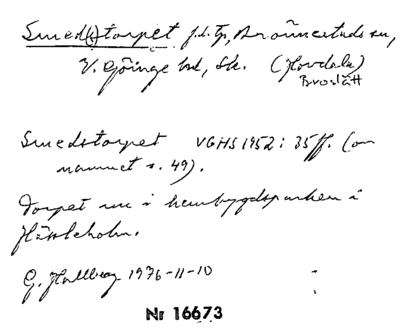 Smed(s)torpet f.d. tp, Brönnestads sn,
V. Göinge hd, Sk. (Hovdala)
Broslätt
Smedstorpet VGHS 1952: 35ff. (om
namnet s. 49).
Torpet nu i hembygdsparken i
Hässleholm.
G. Hallberg 1976-11-10
Nr 16673